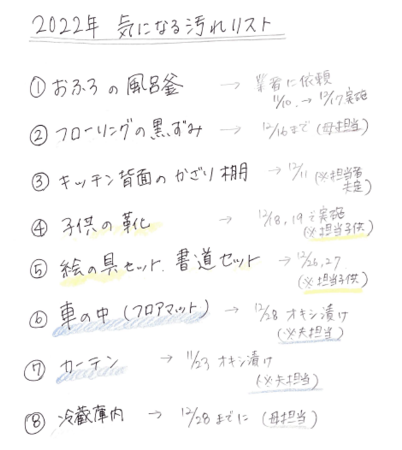 2022年 気になる汚れリスト
① おふろの風呂釜 → 業者に依頼
11/10. → 12/17実施
② フローリングの黒ずみ → 12/16まで (母担当)
③ キッチン背面のかざり棚 → 12/11 (※担当者
未定)
④ 子供の靴 → 12/18,19で実施
(※担当子供)
⑤ 絵の具セット、書道セット → 12/26,27
(※担当子供)
⑥ 車の中 (フロアマット) → 12/28 オキシ漬け
(※夫担当)
⑦ カーテン → 11/23 オキシ漬け
(※夫担当)
⑧ 冷蔵庫内 → 12/28までに (母担当)